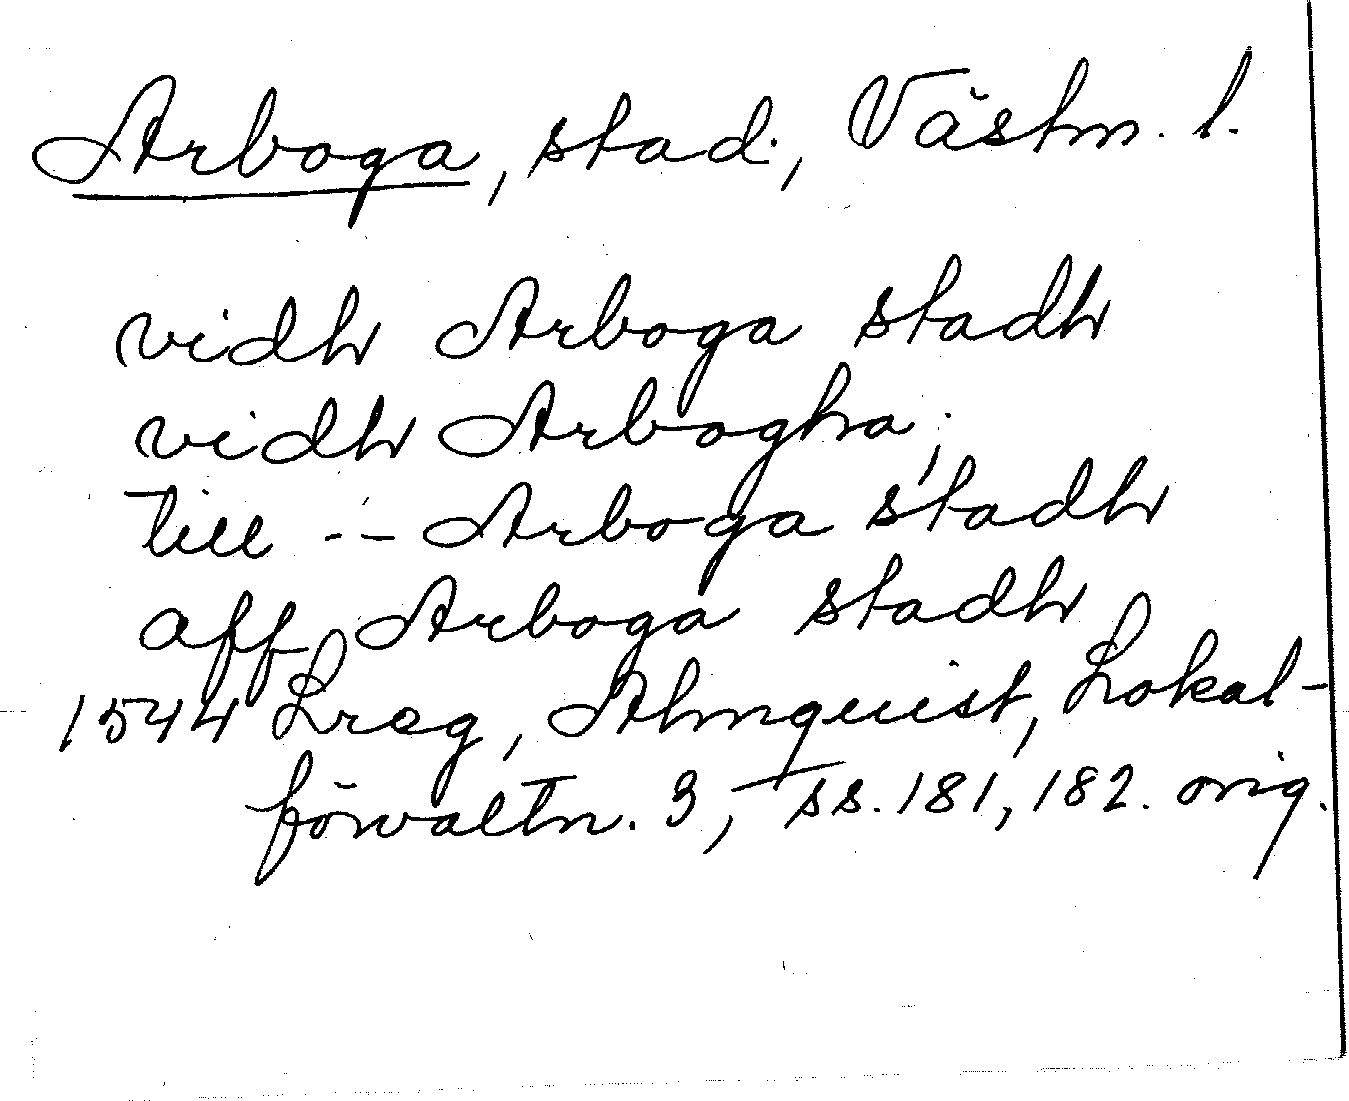 Arboga, stad., Västm. l.
vidh Arboga stadh
vidh Arbogha;
till -- Arboga stadh
aff Arboga stadh
1544 Lreg, Almquist, Lokal-
förvaltn. 3, ss. 181, 182. orig.